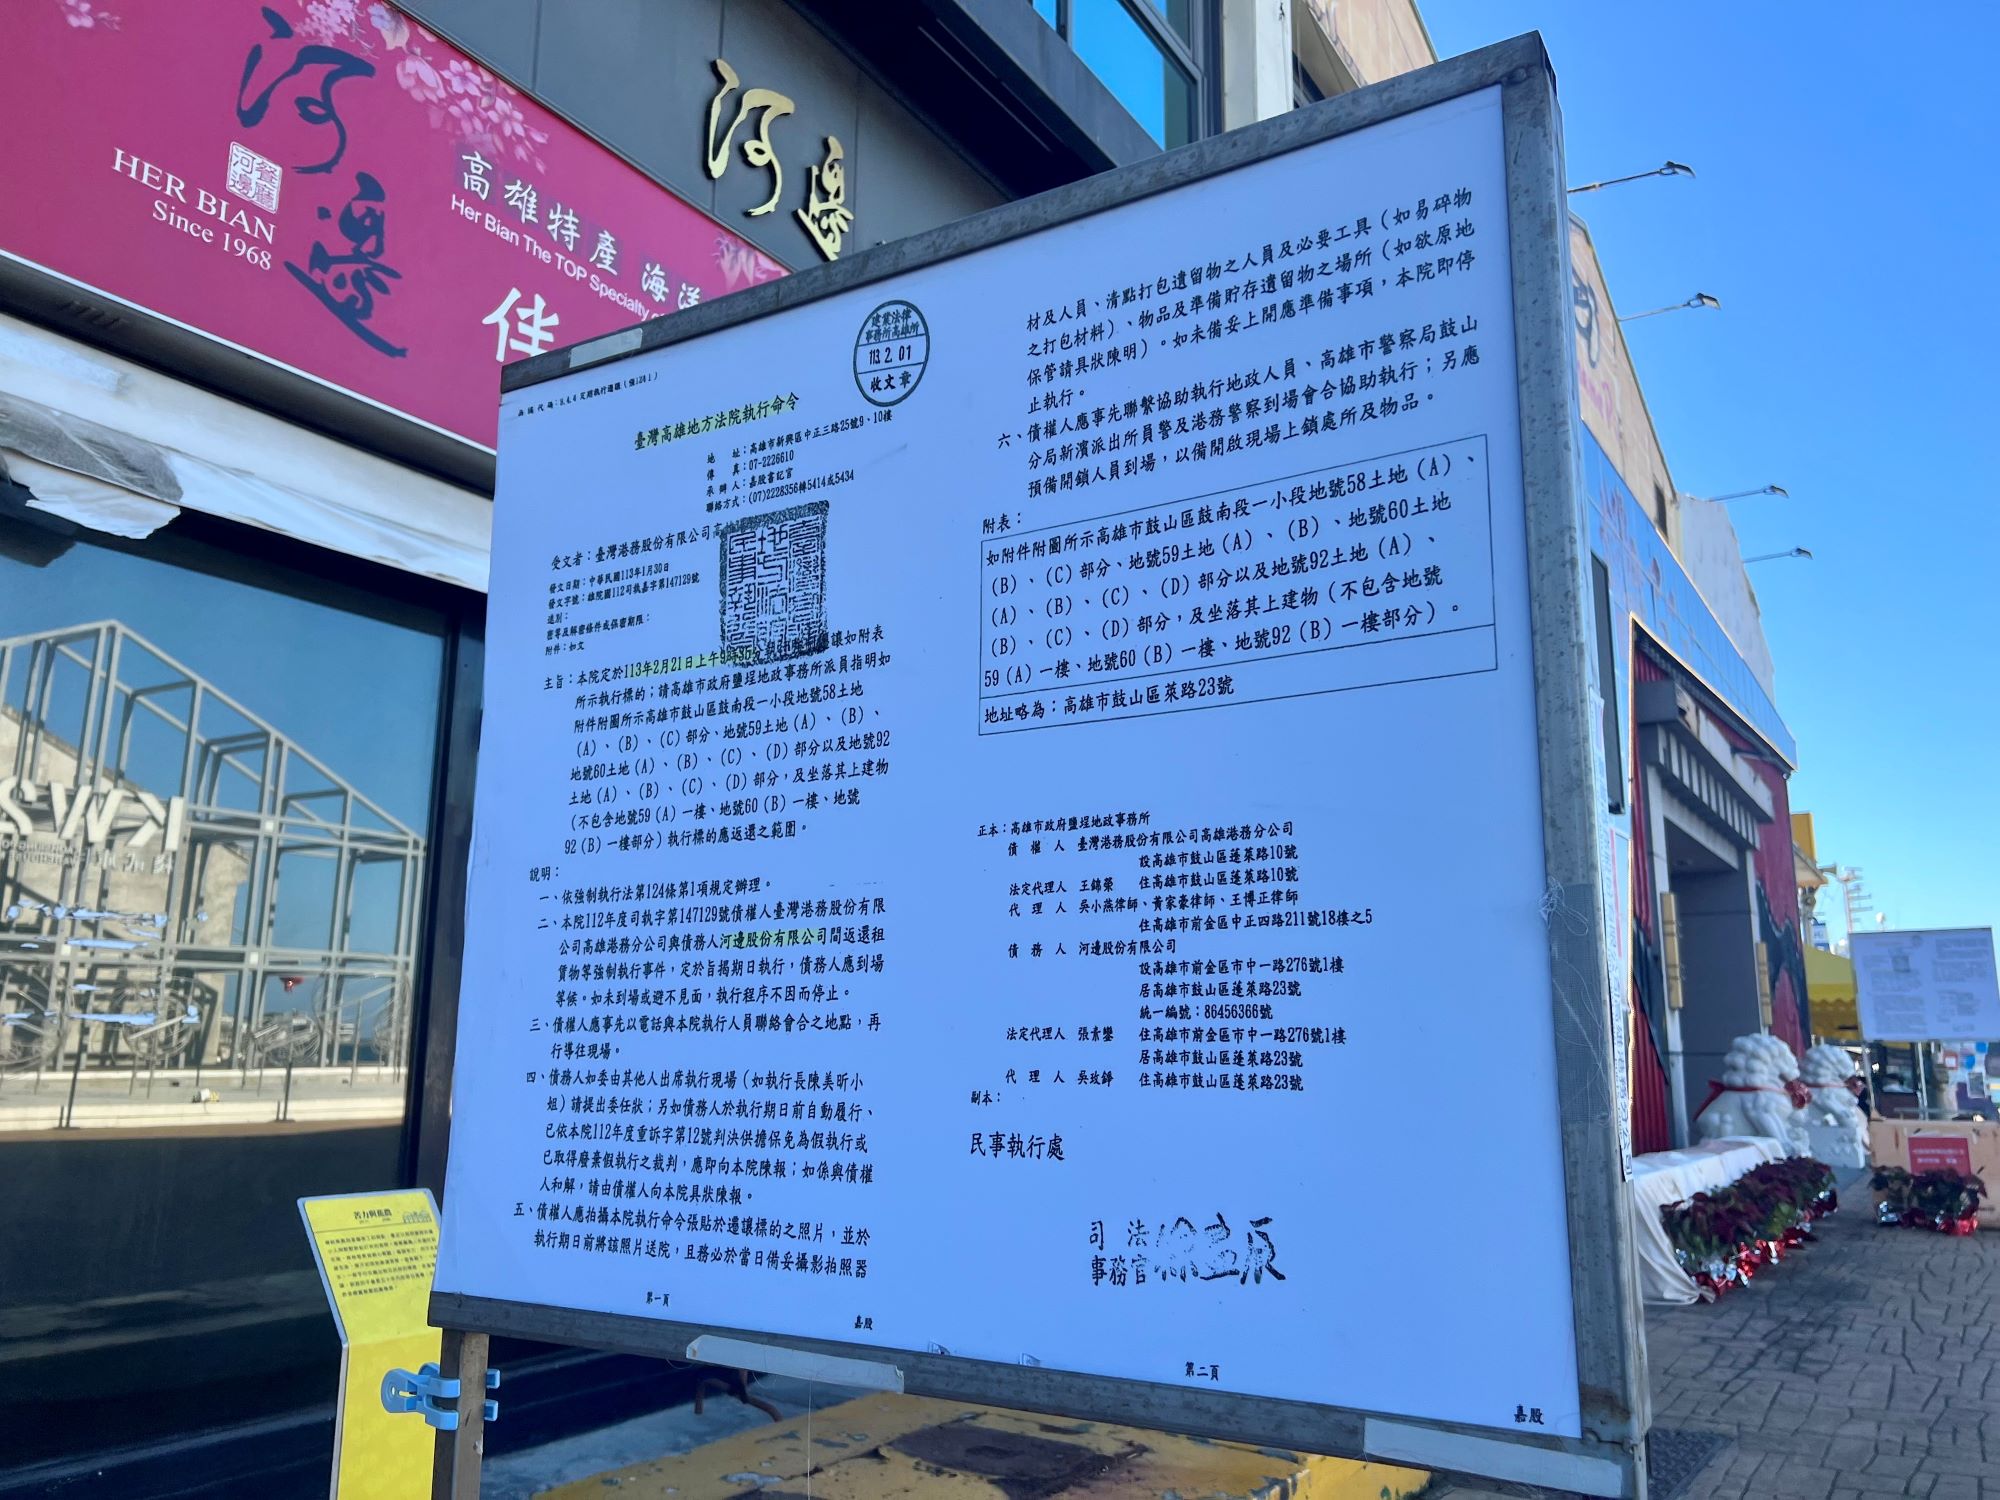 河邊
HER BIAN
Since 1968
河邊餐廳
高雄特產 海洋
Her Bian The TOP Specialty of
伴
河邊
建業法律
事務所高雄所
113. 2. 01
收文章
臺灣高雄地方法院執行命令
地 址：高雄市新興區中正三路25號9、10樓
傳 真：07-2226610
承 辦 人：嘉股書記官
聯絡方式：(07)2228356轉5414或5434
受文者：臺灣港務股份有限公司高
發文日期：中華民國113年1月30日
發文字號：雄院國112司執嘉字第147129號
速別：
密等及解密條件或保密期限：
附件：如文
主旨：本院定於113年2月21日上午9時35分 讓如附表
所示執行標的；請高雄市政府鹽埕地政事務所派員指明如
附件附圖所示高雄市鼓山區鼓南段一小段地號58土地
（A）、（B）、（C）部分、地號59土地（A）、（B）、
地號60土地（A）、（B）、（C）、（D）部分以及地號92
土地（A）、（B）、（C）、（D）部分，及坐落其上建物
（不包含地號59（A）一樓、地號60（B）一樓、地號
92（B）一樓部分）執行標的應返還之範圍。
說明：
一、依強制執行法第124條第1項規定辦理。
二、本院112年度司執字第147129號債權人臺灣港務股份有限
公司高雄港務分公司與債務人河邊股份有限公司間返還租
賃物等強制執行事件，定於旨揭期日執行，債務人應到場
等候。如未到場或避不見面，執行程序不因而停止。
三、債權人應事先以電話與本院執行人員聯絡會合之地點，再
行導往現場。
四、債務人如委由其他人出席執行現場（如執行長陳美昕小
姐）請提出委任狀；另如債務人於執行期日前自動履行、
已依本院112年度重訴字第12號判決供擔保免為假執行或
已取得廢棄假執行之裁判，應即向本院陳報；如係與債權
人和解，請由債權人向本院具狀陳報。
五、債權人應拍攝本院執行命令張貼於遷讓標的之照片，並於
執行期日前將該照片送院，且務必於當日備妥攝影拍照器
第一頁
嘉股
材及人員、清點打包遺留物之人員及必要工具（如易碎物
之打包材料）、物品及準備貯存遺留物之場所（如欲原地
保管請具狀陳明）。如未備妥上開應準備事項，本院即停
止執行。
六、債權人應事先聯繫協助執行地政人員、高雄市警察局鼓山
分局新濱派出所員警及港務警察到場會合協助執行；另應
預備開鎖人員到場，以備開啟現場上鎖處所及物品。
附表：
如附件附圖所示高雄市鼓山區鼓南段一小段地號58土地（A）、
（B）、（C）部分、地號59土地（A）、（B）、地號60土地
（A）、（B）、（C）、（D）部分以及地號92土地（A）、
（B）、（C）、（D）部分，及坐落其上建物（不包含地號
59（A）一樓、地號60（B）一樓、地號92（B）一樓部分）。
地址略為：高雄市鼓山區萊路23號
正本：高雄市政府鹽埕地政事務所
債 權 人 臺灣港務股份有限公司高雄港務分公司
設高雄市鼓山區蓬萊路10號
法定代理人 王錦榮 住高雄市鼓山區蓬萊路10號
代 理 人 吳小燕律師、黃家豪律師、王博正律師
住高雄市前金區中正四路211號18樓之5
債 務 人 河邊股份有限公司
設高雄市前金區市中一路276號1樓
居高雄市鼓山區蓬萊路23號
統一編號：86456366號
法定代理人 張素鑾 住高雄市前金區市中一路276號1樓
居高雄市鼓山區蓬萊路23號
代 理 人 吳玫錚 住高雄市鼓山區蓬萊路23號
副本：
民事執行處
司 法
事務官
第二頁
嘉股